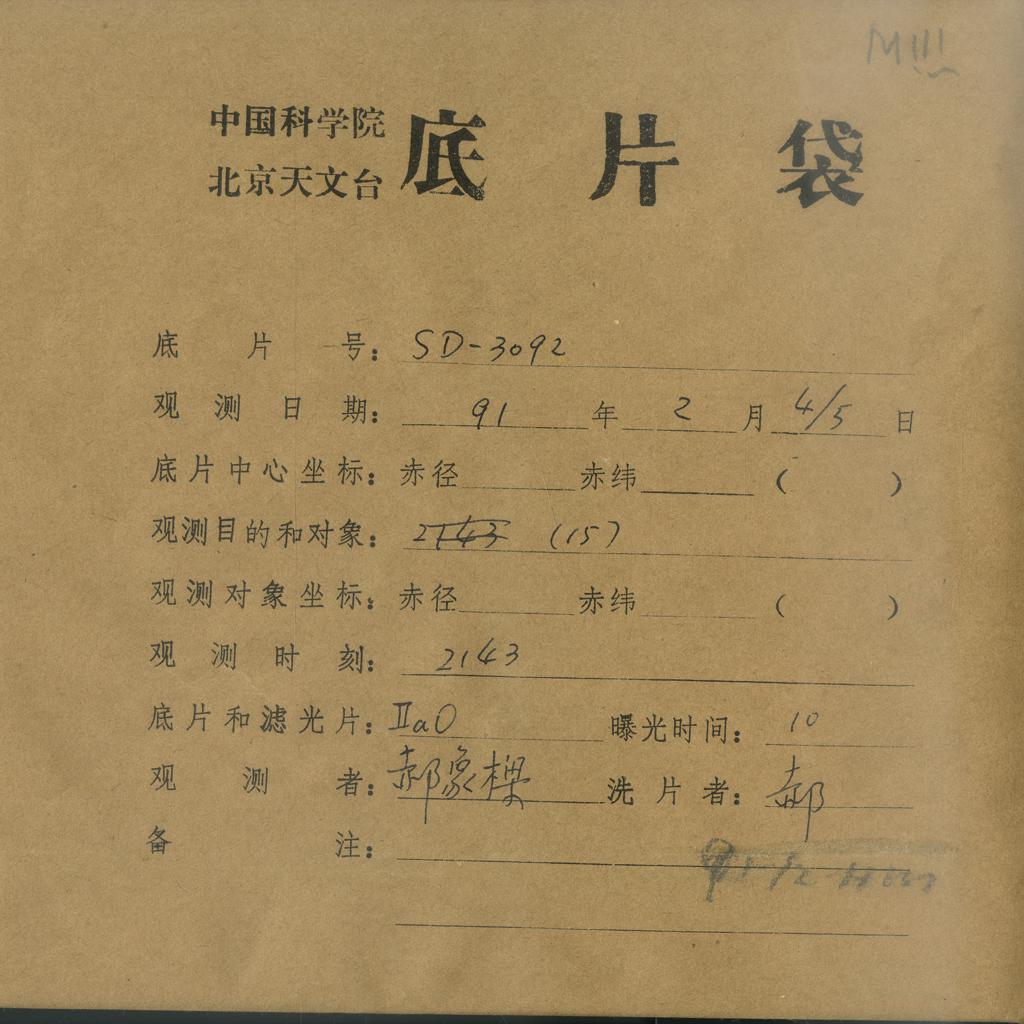 中国科学院
北京天文台 底片袋
底片号：SD-3092
观测日期：91年2月4/5日
底片中心坐标：赤径 赤纬 （ ）
观测目的和对象：2143 (15)
观测对象坐标：赤径 赤纬 （ ）
观测时刻：2143
底片和滤光片：IIaO 曝光时间：10
观测者：郝象樑 洗片者：郝
备注：